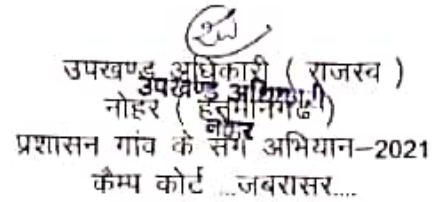 उपखण्ड अधिकारी ( राजस्व )
उपखण्ड अधिकारी
नोहर ( हनुमानगढ )
नोहर
प्रशासन गांव के संग अभियान–2021
कैम्प कोर्ट ...जबरासर....